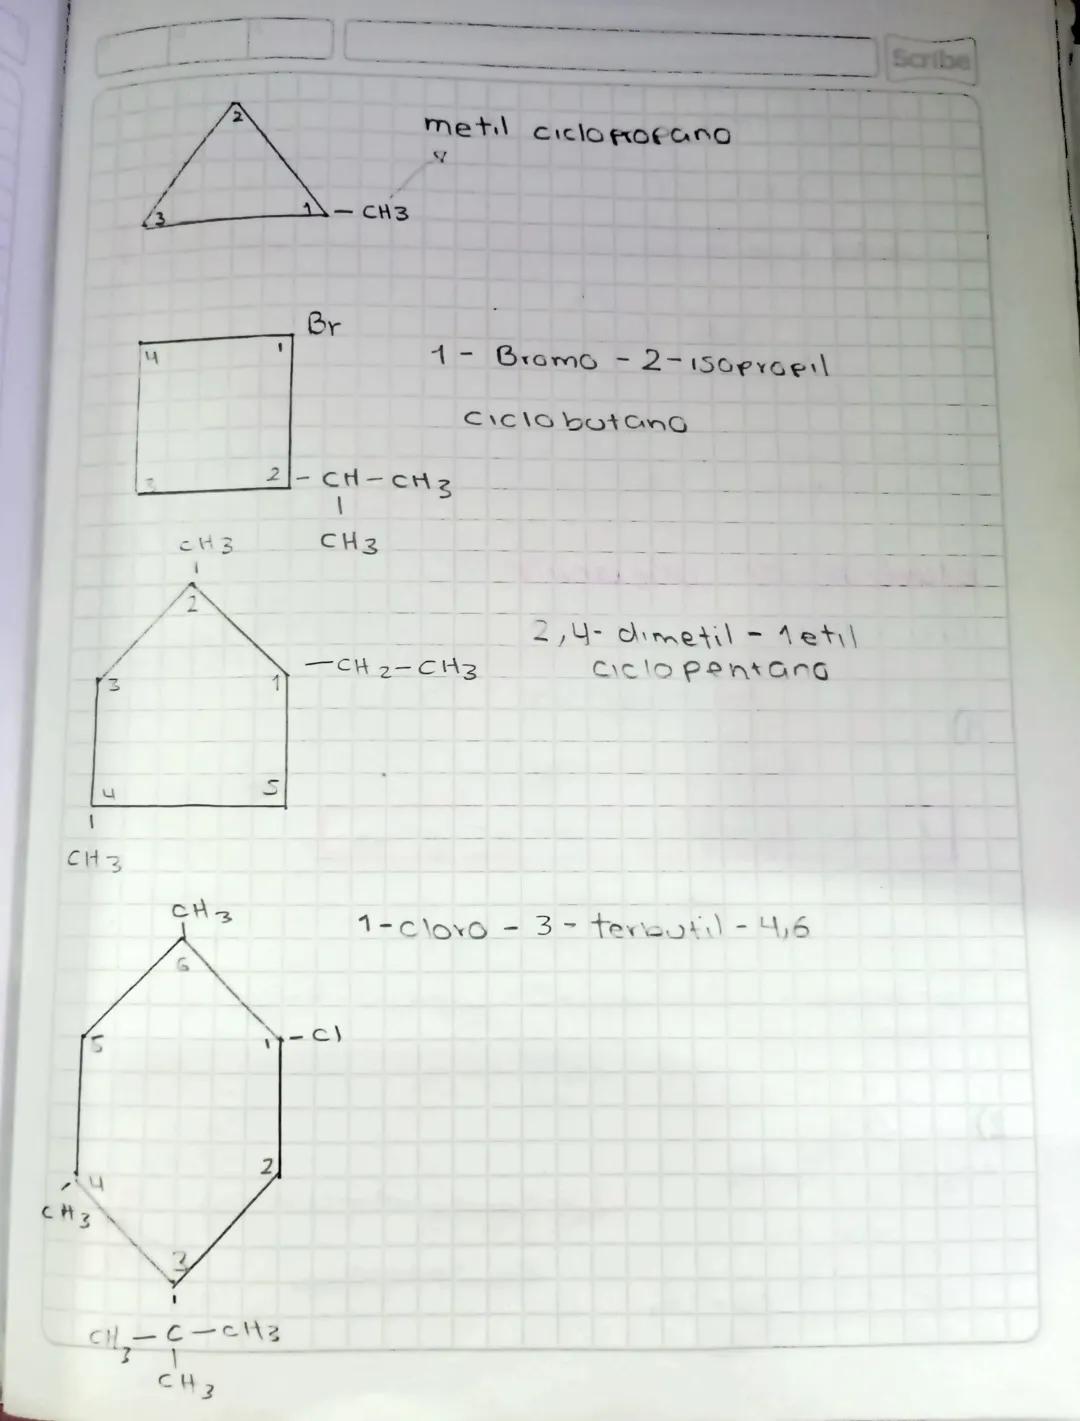 Scribe
2
metil ciclopropano
3 1 - CH3
Br
4 1
1 - Bromo - 2 - isopropil
ciclobutano
3 2 - CH - CH3
CH3 CH3
2
2,4- dimetil - 1 etil
- CH2 - CH3
ciclopentano
3 1
4 5
CH3
CH3
1-cloro - 3 - terbutil - 4,6
6
5 1 - Cl
2
4
CH3
3
CH3 - C - CH3
CH3